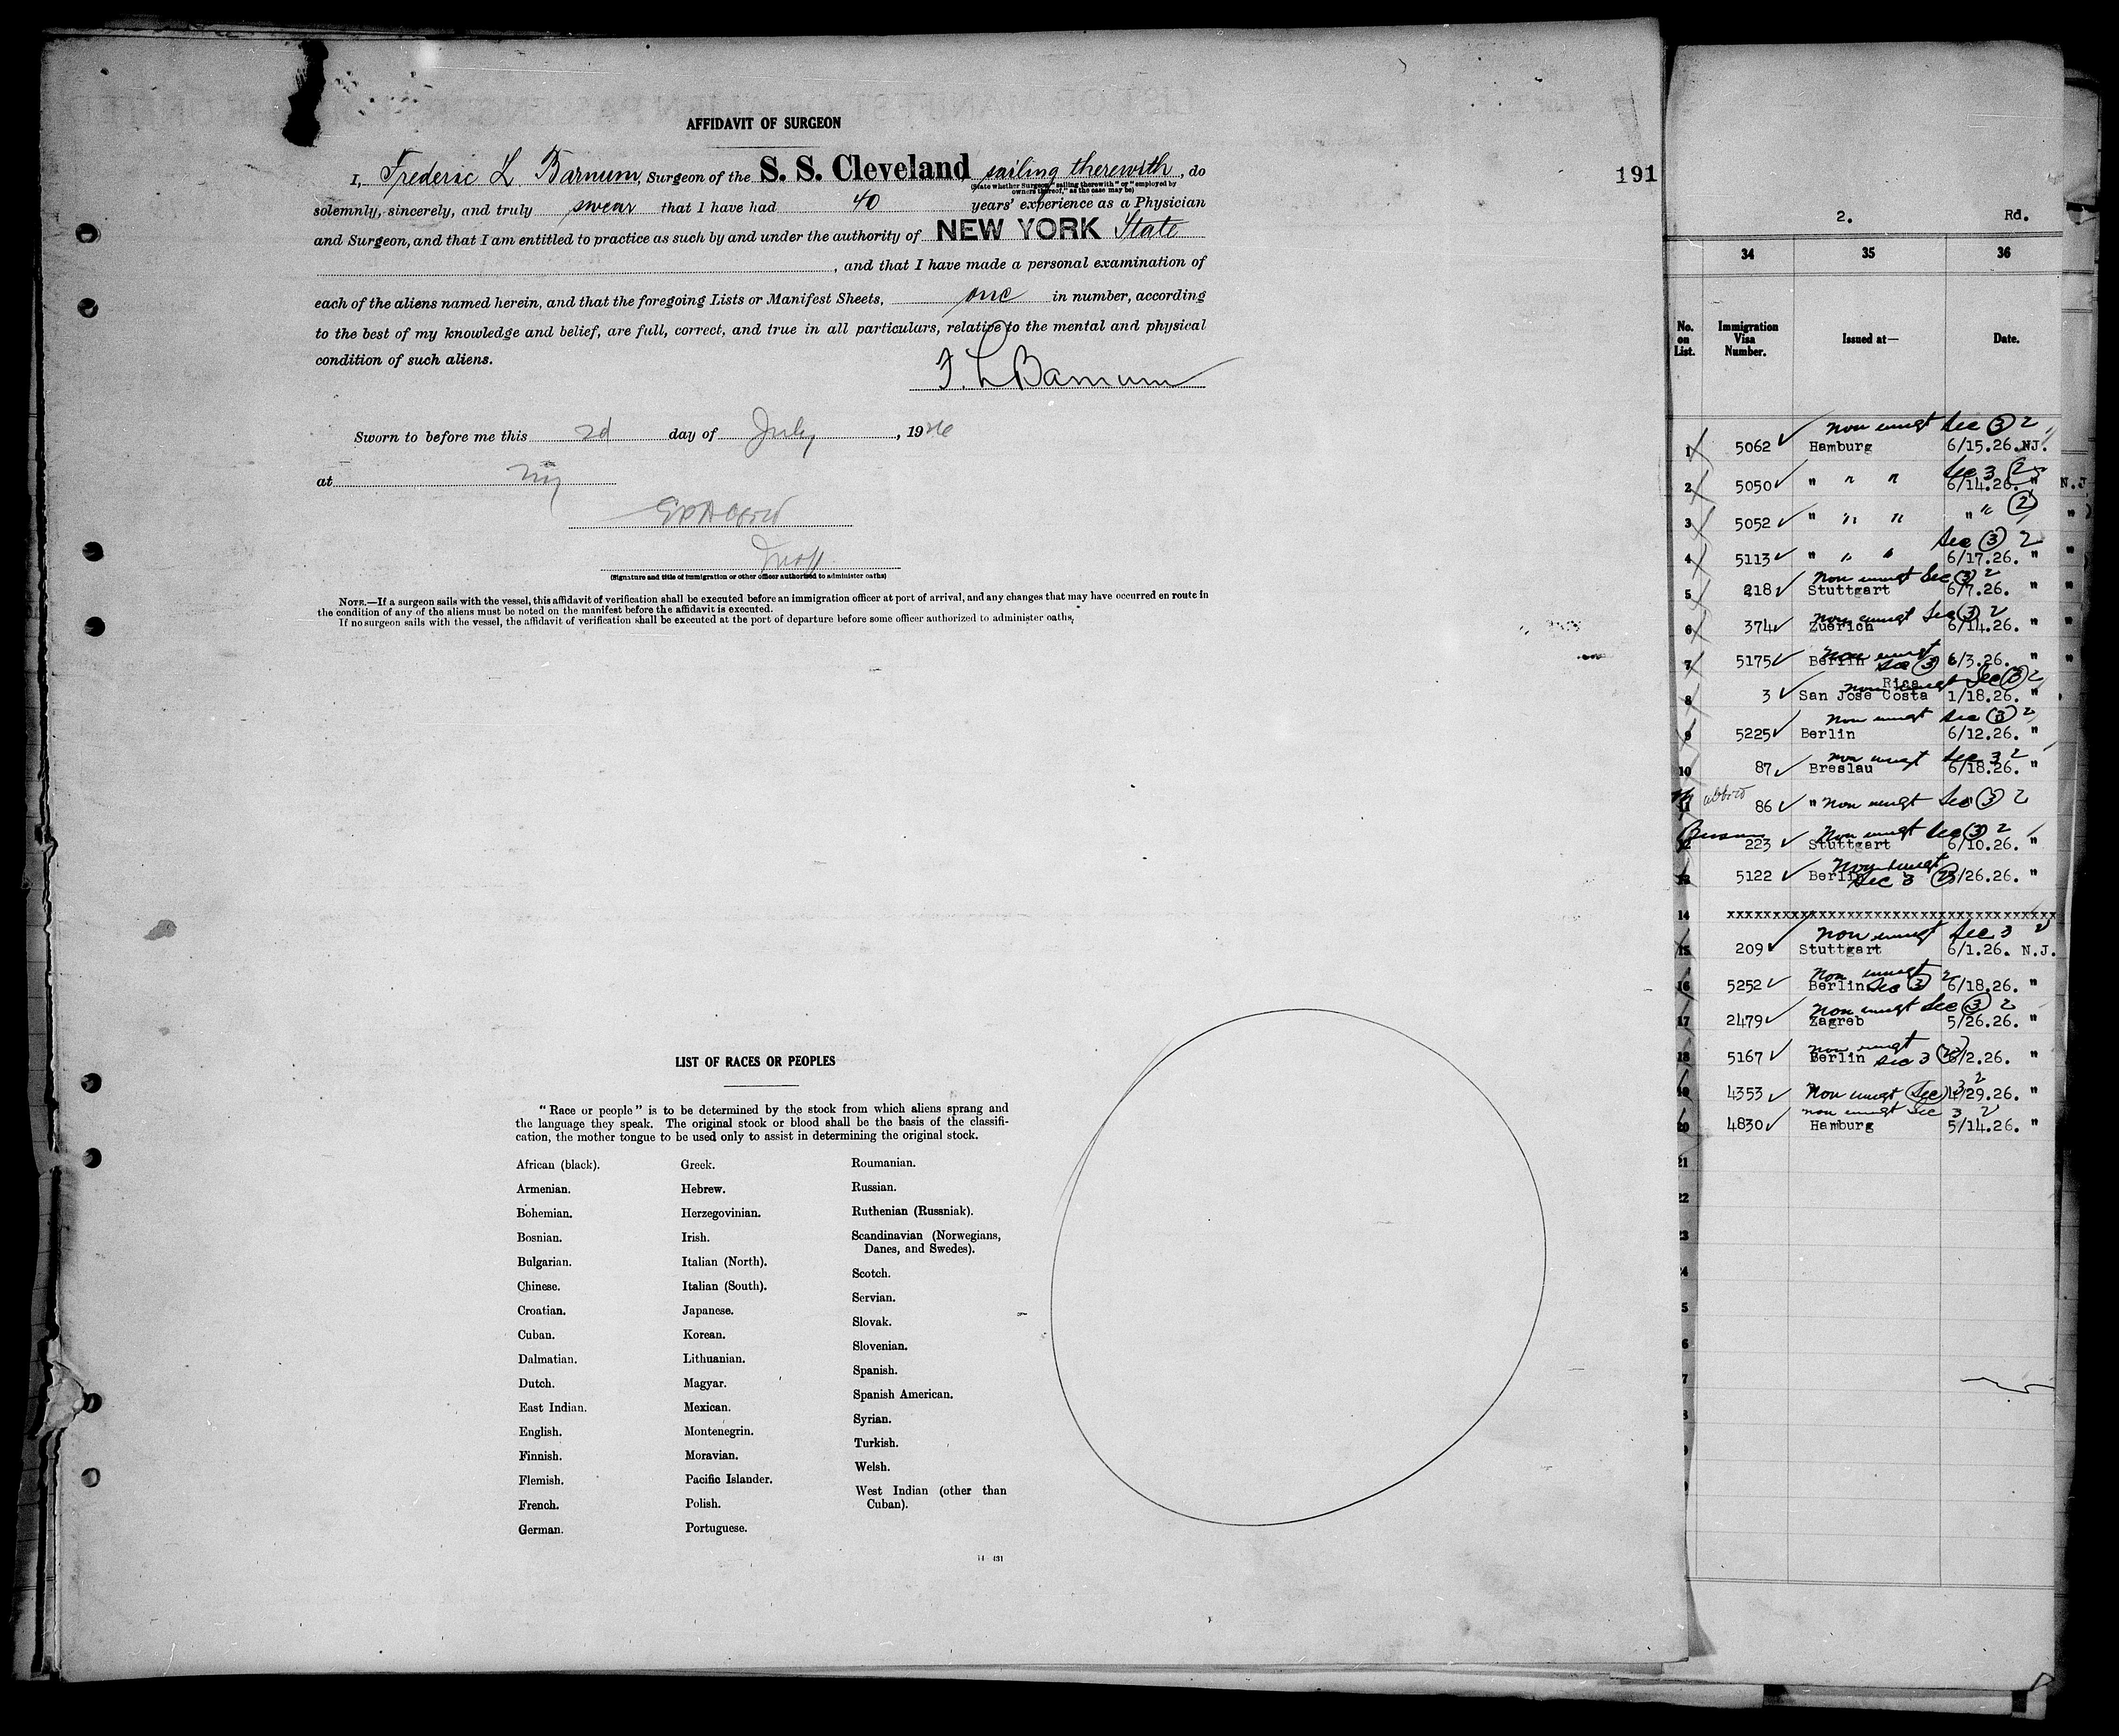 AFFIDAVIT OF SURGEON
I, Frederic L. Barnum, Surgeon of the S. S. Cleveland sailing therewith, do
(State whether Surgeon "sailing therewith" or "employed by owners thereof," as the case may be)
solemnly, sincerely, and truly swear that I have had 40 years' experience as a Physician
and Surgeon, and that I am entitled to practice as such by and under the authority of NEW YORK State
, and that I have made a personal examination of
each of the aliens named herein, and that the foregoing Lists or Manifest Sheets, one in number, according
to the best of my knowledge and belief, are full, correct, and true in all particulars, relative to the mental and physical
condition of such aliens.
F. L Barnum
Sworn to before me this 2d day of July, 1926
at NY
(Signature and title of immigration or other officer authorized to administer oaths)
NOTE.—If a surgeon sails with the vessel, this affidavit of verification shall be executed before an immigration officer at port of arrival, and any changes that may have occurred en route in
the condition of any of the aliens must be noted on the manifest before the affidavit is executed.
If no surgeon sails with the vessel, the affidavit of verification shall be executed at the port of departure before some officer authorized to administer oaths.
LIST OF RACES OR PEOPLES
"Race or people" is to be determined by the stock from which aliens sprang and
the language they speak. The original stock or blood shall be the basis of the classifi-
cation, the mother tongue to be used only to assist in determining the original stock.
African (black).
Armenian.
Bohemian.
Bosnian.
Bulgarian.
Chinese.
Croatian.
Cuban.
Dalmatian.
Dutch.
East Indian.
English.
Finnish.
Flemish.
French.
German.
Greek.
Hebrew.
Herzegovinian.
Irish.
Italian (North).
Italian (South).
Japanese.
Korean.
Lithuanian.
Magyar.
Mexican.
Montenegrin.
Moravian.
Pacific Islander.
Polish.
Portuguese.
Roumanian.
Russian.
Ruthenian (Russniak).
Scandinavian (Norwegians,
Danes, and Swedes).
Scotch.
Servian.
Slovak.
Slovenian.
Spanish.
Spanish American.
Syrian.
Turkish.
Welsh.
West Indian (other than
Cuban).
191
2. Rd.
34 35 36
No. on List. Immigration Visa Number. Issued at— Date.
non imgt Sec 3 2
1 5062 Hamburg 6/15.26. NJ.
Sec 3 2
2 5050 " " " 6/14.26. " N.J
2
3 5052 " " " " " "
Sec 3 2
4 5113 " " " 6/17.26. " "
non imgt Sec 3 2
5 218 Stuttgart 6/7.26. " "
non imgt Sec 3 2
6 374 Zuerich 6/14.26. " "
non imgt Sec 3
7 5175 Berlin 6/3.26. " "
non imgt Sec 3 2
8 3 San Jose Costa Rica 1/18.26. "
non imgt Sec 3 2
9 5225 Berlin 6/12.26. "
non imgt Sec 3 2
10 87 Breslau 6/18.26. "
11 86 " non imgt Sec 3 2
non imgt Sec 3 2
12 223 Stuttgart 6/10.26. "
non imgt Sec 3
13 5122 Berlin /26.26. "
14 xxxxxxxxxxxxxxxxxxxxxxxxxxxxxxxxxxx
non imgt Sec 3 2
15 209 Stuttgart 6/1.26. N.J.
non imgt Sec 3 2
16 5252 Berlin 6/18.26. "
non imgt Sec 3 2
17 2479 Zagreb 5/26.26. "
non imgt Sec 3 2
18 5167 Berlin 6/2.26. "
19 4353 non imgt Sec 3 2 4/29.26. "
non imgt Sec 3 2
20 4830 Hamburg 5/14.26. "
21
22
23